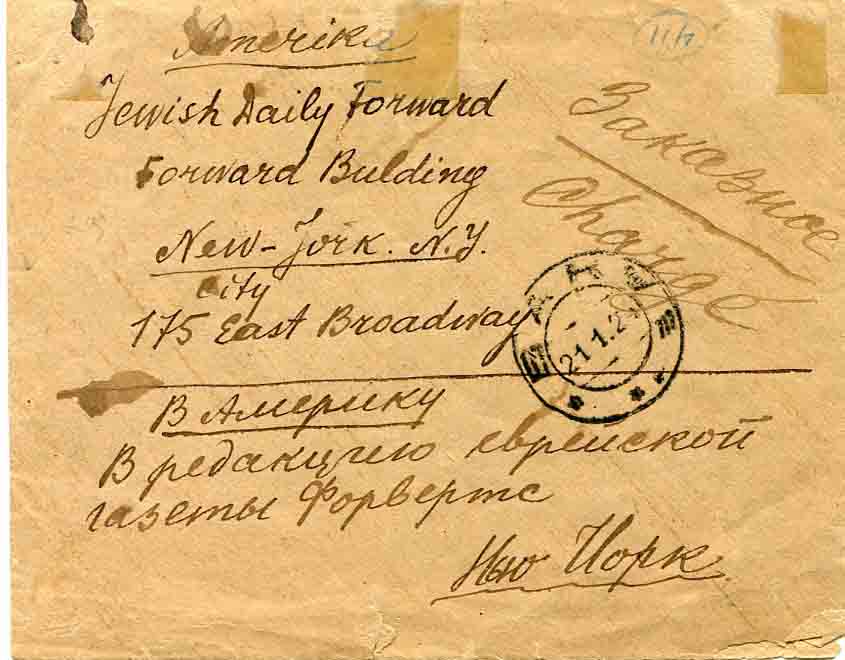 Amerika
Jewish Daily Forward
Forward Bulding
New-York. N.Y.
City
175 East Broadway
Заказное
Chargé
21.1.2
В Америку
В редакцию еврейской
газеты Форвертс
Нью Йорк